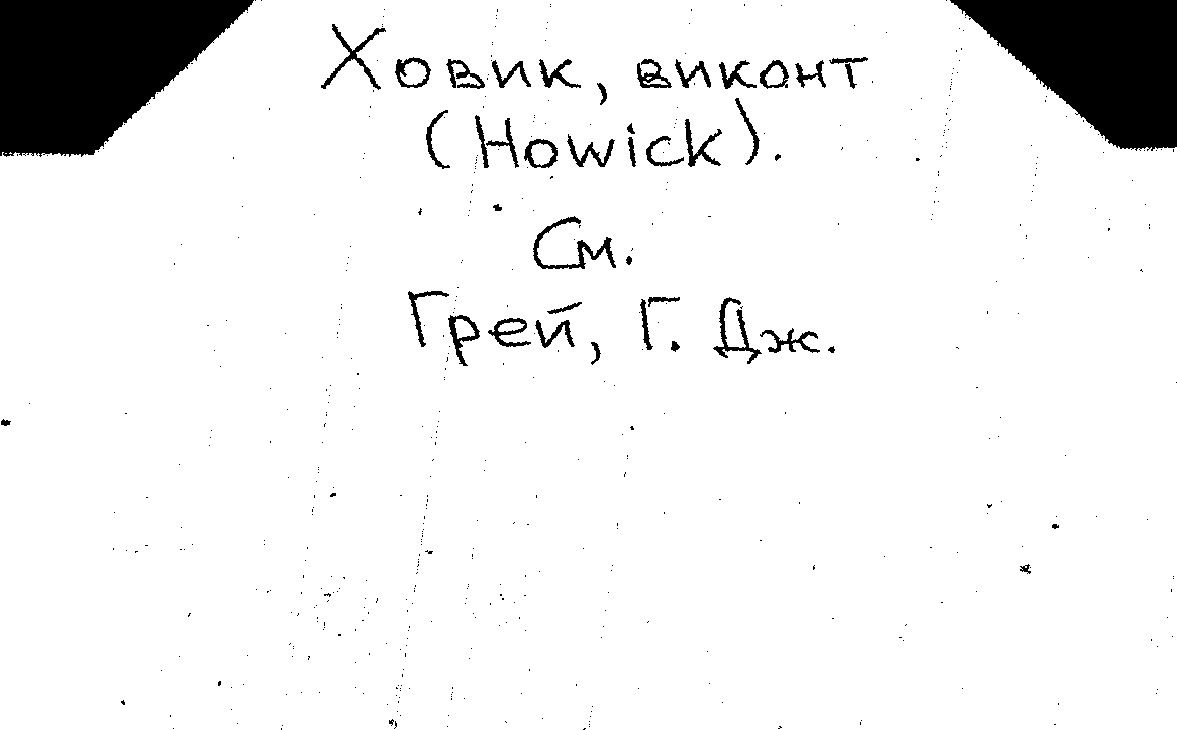 Ховик, виконт
(Howick).
См.
Грей, Г. Дж.